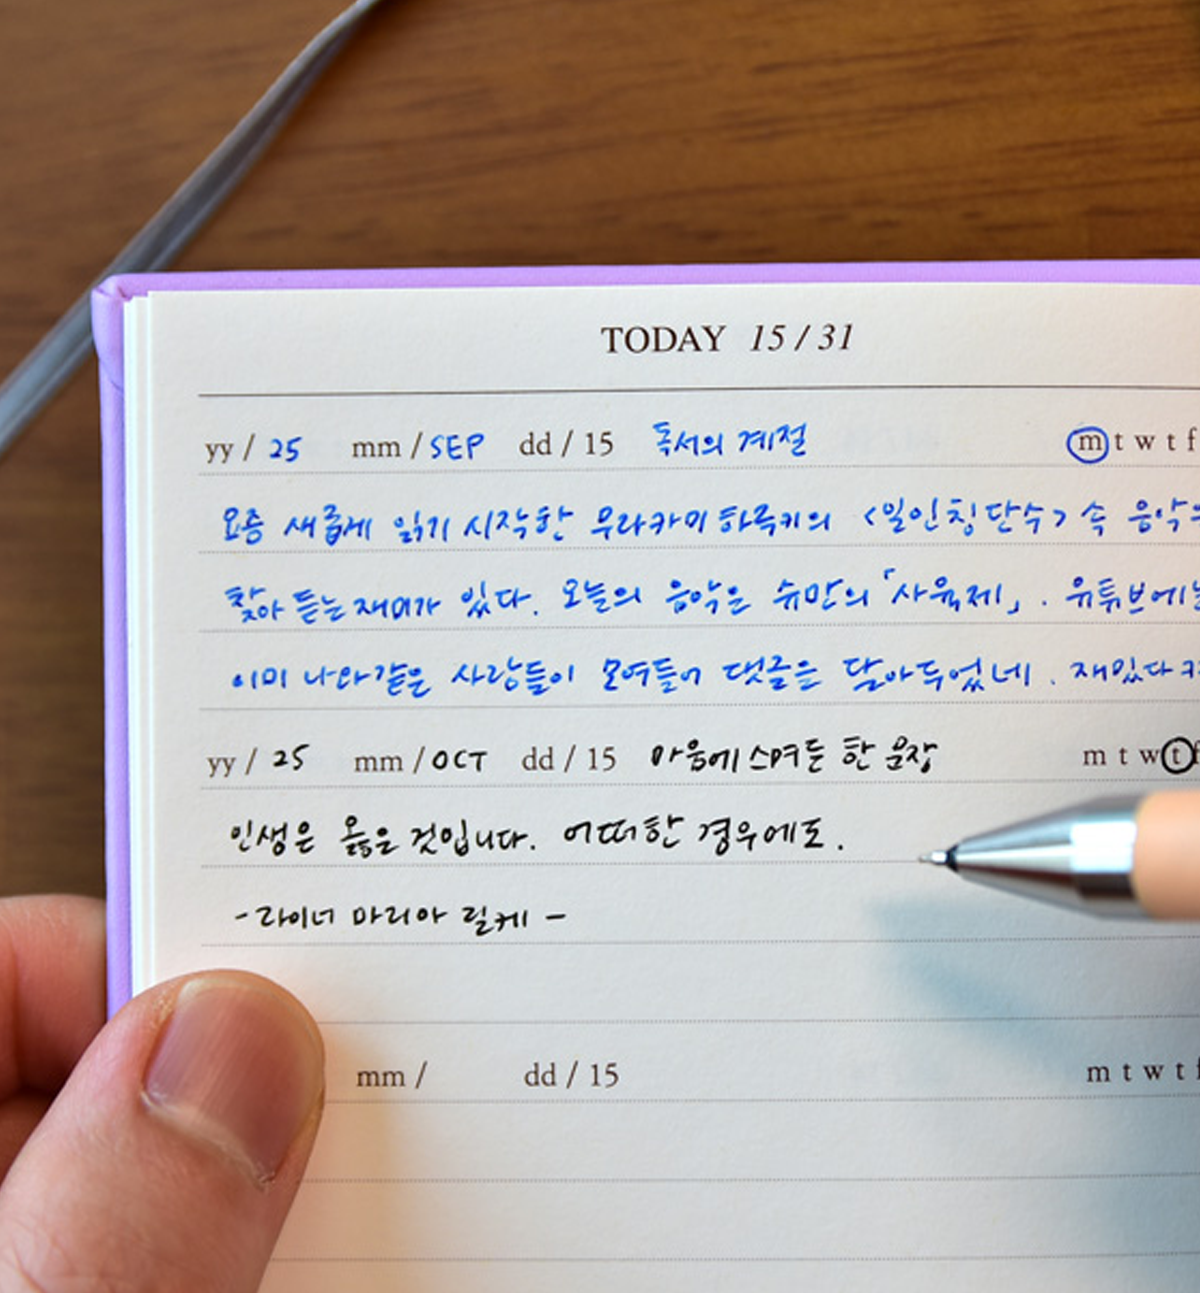 TODAY 15/31
yy / 25 mm / SEP dd / 15 독서의 계절 m t w t f
요즘 새롭게 읽기 시작한 무라카미 하루키의 <일인칭 단수> 속 음악을
찾아 듣는 재미가 있다. 오늘의 음악은 슈만의 「사육제」. 유튜브에는
이미 나와 같은 사람들이 모여들어 댓글을 달아두었네. 재밌다 ㅋ
yy / 25 mm / OCT dd / 15 마음에 스며든 한 문장 m t w t f
인생은 옳은 것입니다. 어떠한 경우에도.
- 라이너 마리아 릴케 -
mm / dd / 15 m t w t f